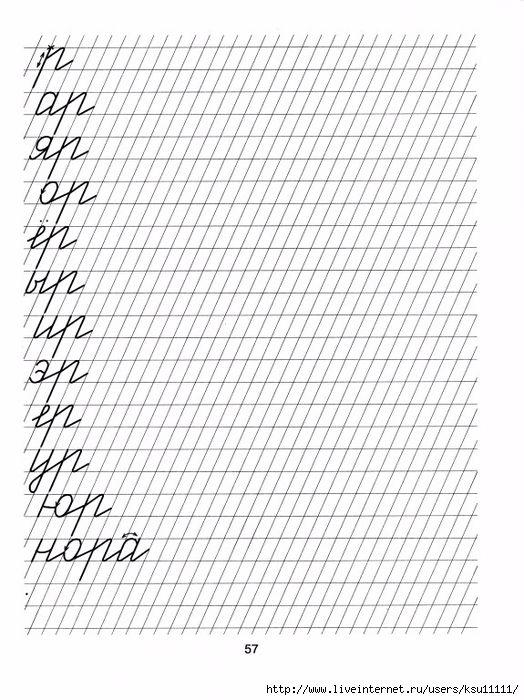 р
ар
яр
ор
ёр
ыр
ир
эр
ер
ур
юр
нора
57
http://www.liveinternet.ru/users/ksu11111/